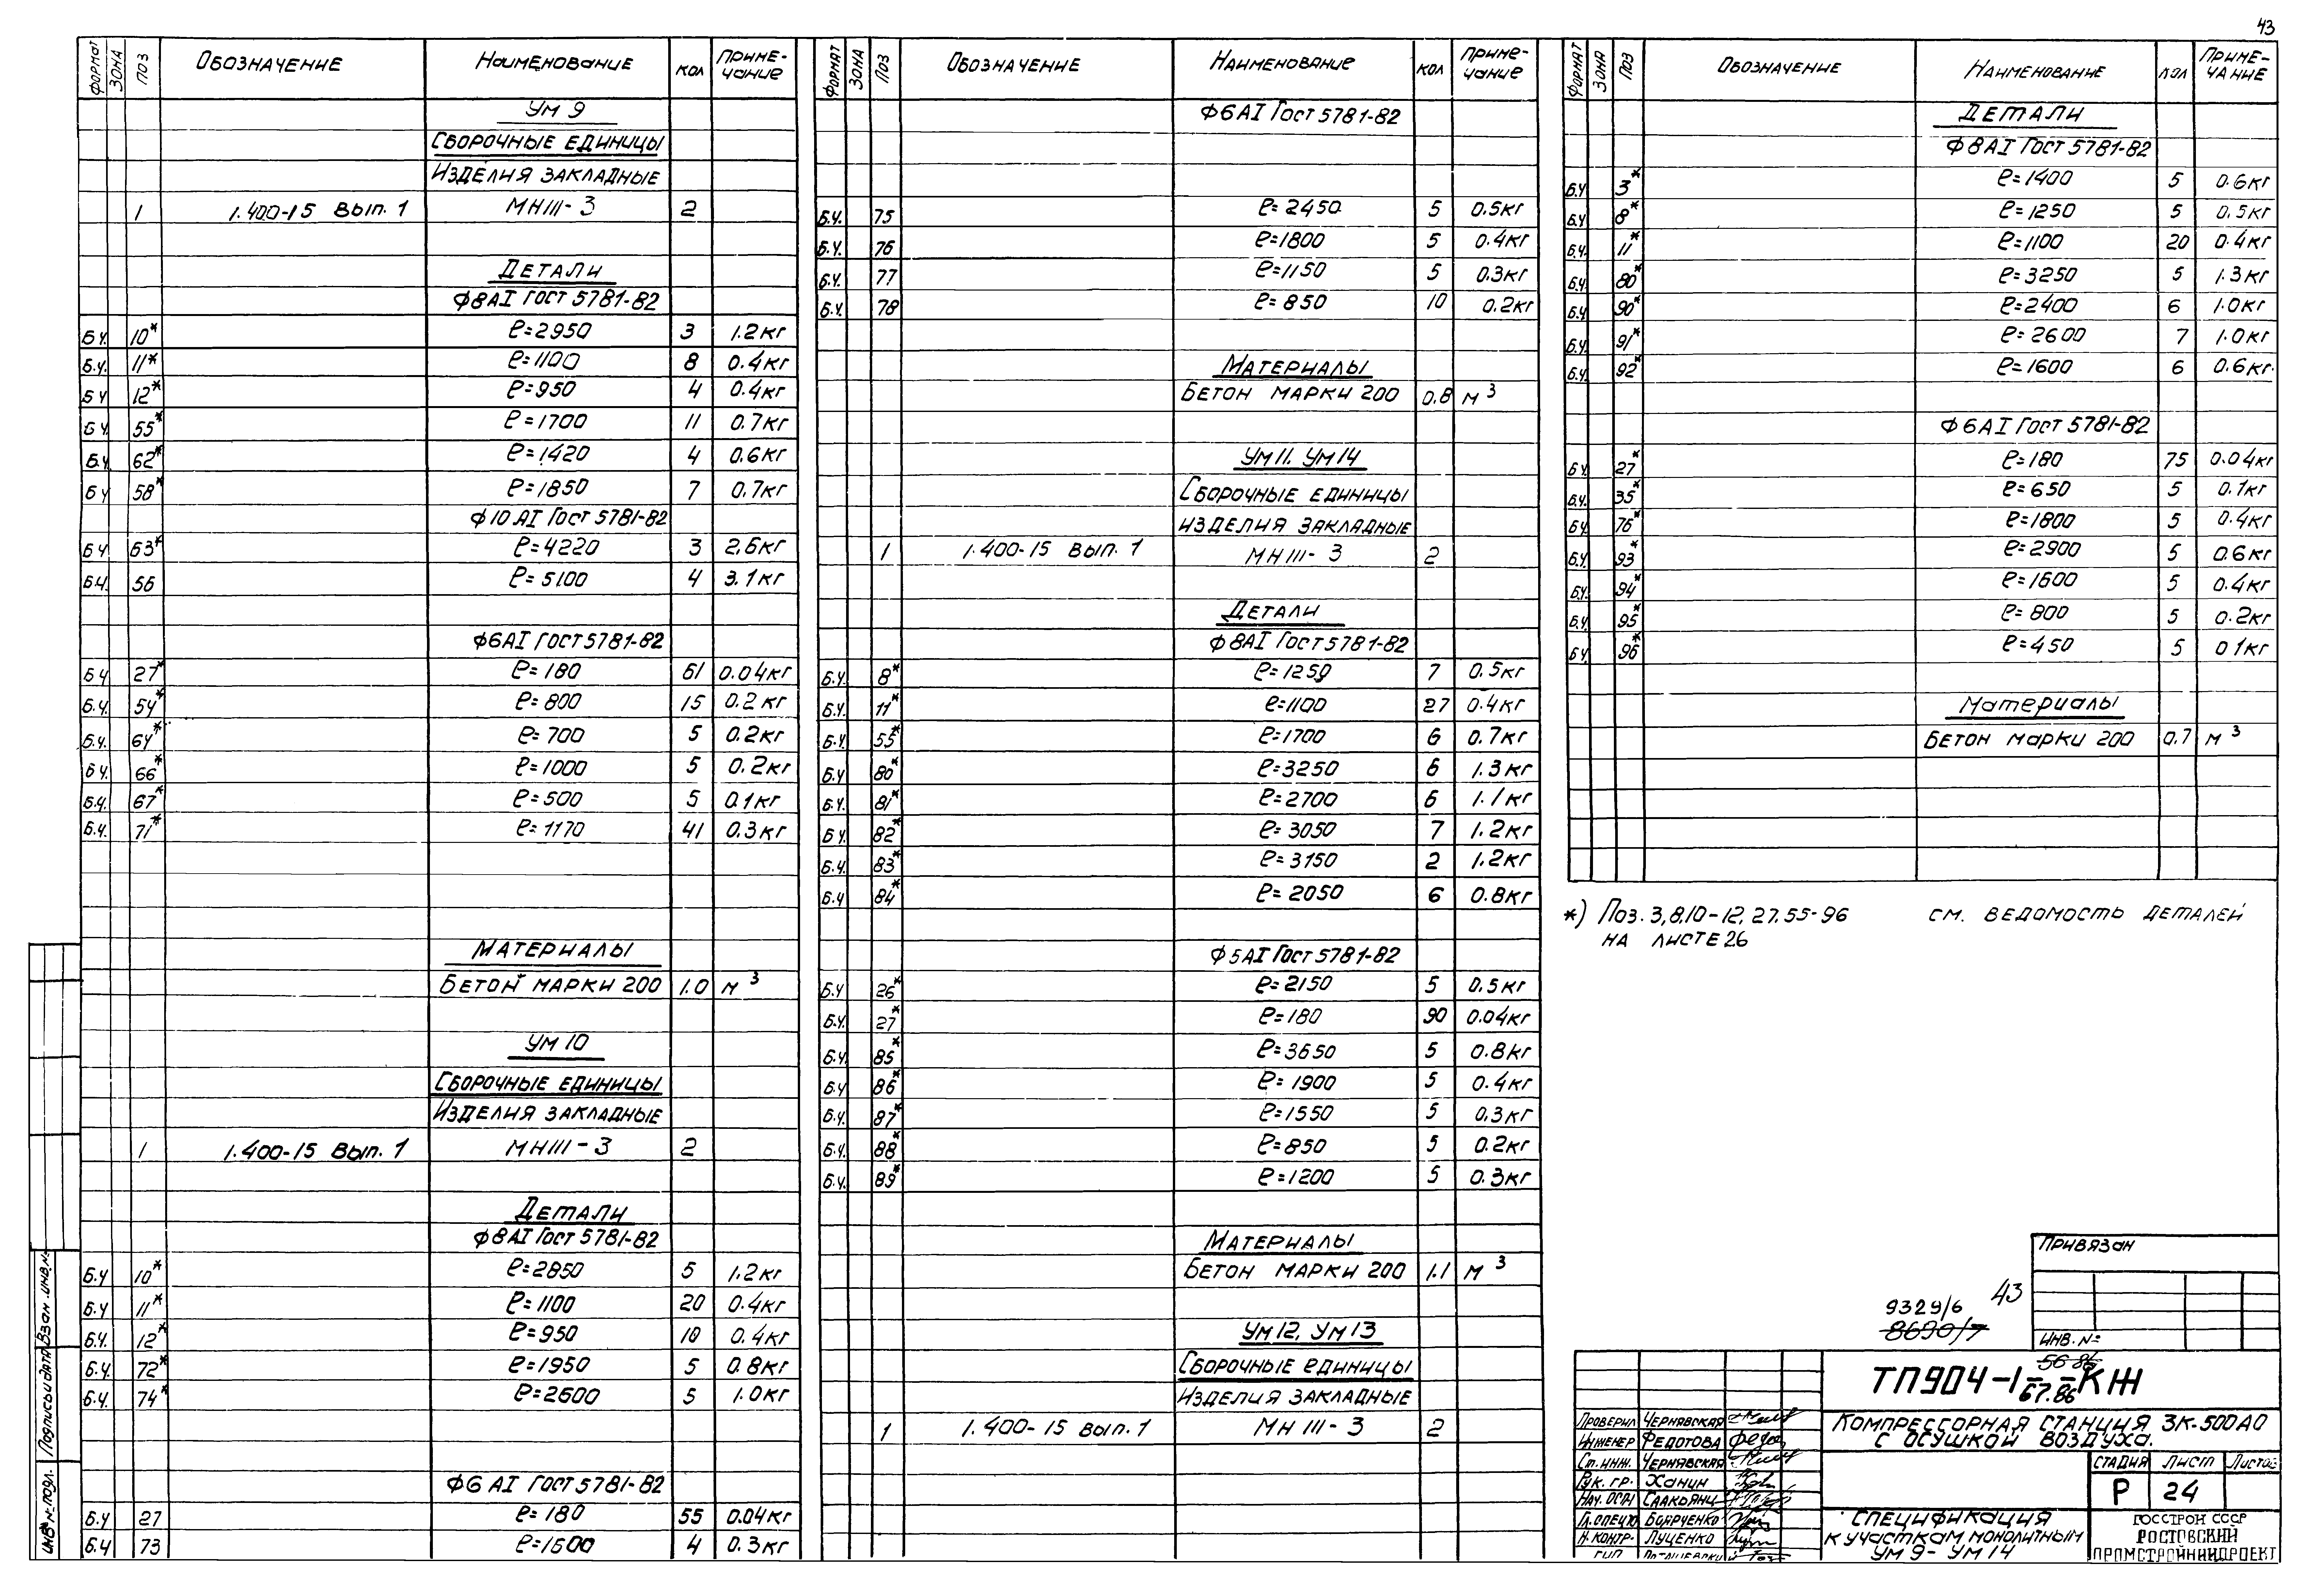 43
Формат Зона Поз Обозначение Наименование Кол Примечание
Ум 9
Сборочные единицы
Изделия закладные
1 1.400-15 Вып. 1 МН111-3 2
Детали
Ф8АI Гост 5781-82
Б.Ч. 10* ℓ=2950 3 1.2кг
Б.Ч. 11* ℓ=1100 8 0.4кг
Б.Ч 12* ℓ=950 4 0.4кг
Б.Ч. 55* ℓ=1700 11 0.7кг
Б.Ч 62* ℓ=1420 4 0.6кг
Б.Ч 58* ℓ=1850 7 0.7кг
Ф10АI Гост 5781-82
Б.Ч 63* ℓ=4220 3 2.6кг
Б.Ч. 56 ℓ=5100 4 3.1кг
Ф6АI Гост 5781-82
Б.Ч 27* ℓ=180 61 0.04кг
Б.Ч. 54* ℓ=800 15 0.2кг
Б.Ч. 64* ℓ=700 5 0.2кг
Б.Ч 66* ℓ=1000 5 0.2кг
Б.Ч. 67* ℓ=500 5 0.1кг
Б.Ч. 71* ℓ=1170 41 0.3кг
Материалы
Бетон марки 200 1.0 м³
Ум 10
Сборочные единицы
Изделия закладные
1 1.400-15 Вып. 1 МН111-3 2
Детали
Ф8АI Гост 5781-82
Б.Ч 10* ℓ=2850 5 1.2кг
Б.Ч 11* ℓ=1100 20 0.4кг
Б.Ч. 12* ℓ=950 10 0.4кг
Б.Ч. 72* ℓ=1950 5 0.8кг
Б.Ч. 74* ℓ=2600 5 1.0кг
Ф6АI Гост 5781-82
Б.Ч 27 ℓ=180 55 0.04кг
Б.Ч 73 ℓ=1600 4 0.3кг
Формат Зона Поз Обозначение Наименование Кол Примечание
Ф6АI Гост 5781-82
Б.Ч. 75 ℓ=2450 5 0.5кг
Б.Ч. 76 ℓ=1800 5 0.4кг
Б.Ч. 77 ℓ=1150 5 0.3кг
Б.Ч. 78 ℓ=850 10 0.2кг
Материалы
Бетон марки 200 0.8 м³
Ум11. Ум14
Сборочные единицы
Изделия закладные
1 1.400-15 Вып. 1 МН111-3 2
Детали
Ф8АI Гост 5781-82
Б.Ч. 8* ℓ=1250 7 0.5кг
Б.Ч. 11* ℓ=1100 27 0.4кг
Б.Ч. 55* ℓ=1700 6 0.7кг
Б.Ч 80* ℓ=3250 6 1.3кг
Б.Ч. 81* ℓ=2700 6 1.1кг
Б.Ч 82* ℓ=3050 7 1.2кг
Б.Ч. 83* ℓ=3150 2 1.2кг
Б.Ч 84* ℓ=2050 6 0.8кг
Ф5АI Гост 5781-82
Б.Ч 26* ℓ=2150 5 0.5кг
Б.Ч. 27* ℓ=180 90 0.04кг
Б.Ч. 85* ℓ=3650 5 0.8кг
Б.Ч 86* ℓ=1900 5 0.4кг
Б.Ч. 87* ℓ=1550 5 0.3кг
Б.Ч. 88* ℓ=850 5 0.2кг
Б.Ч. 89* ℓ=1200 5 0.3кг
Материалы
Бетон марки 200 1.1 м³
Ум12, Ум13
Сборочные единицы
Изделия закладные
1 1.400-15 Вып. 1 МН111-3 2
Формат Зона Поз Обозначение Наименование Кол Примечание
Детали
Ф8АI Гост 5781-82
Б.Ч 3* ℓ=1400 5 0.6кг
Б.Ч 8* ℓ=1250 5 0.5кг
Б.Ч. 11* ℓ=1100 20 0.4кг
Б.Ч. 80* ℓ=3250 5 1.3кг
Б.Ч 90* ℓ=2400 6 1.0кг
Б.Ч. 91* ℓ=2600 7 1.0кг
Б.Ч. 92* ℓ=1600 6 0.6кг.
Ф6АI Гост 5781-82
Б.Ч. 27* ℓ=180 75 0.04кг
Б.Ч. 35* ℓ=650 5 0.1кг
Б.Ч. 76* ℓ=1800 5 0.4кг
Б.Ч. 93* ℓ=2900 5 0.6кг
Б.Ч. 94* ℓ=1600 5 0.4кг
Б.Ч. 95* ℓ=800 5 0.2кг
Б.Ч. 96* ℓ=450 5 0.1кг
Материалы
Бетон марки 200 0.7 м³
*) Поз. 3,8,10-12, 27. 55-96 см. ведомость деталей
на листе 26
Привязан
Инв. №
9329/6 43
8690/7
56-86
ТП904-1-67.86-КЖ
Компрессорная станция 3К-500АО
с осушкой воздуха.
Стадия Лист Листов
Р 24
Спецификация
к участкам монолитным
Ум 9 - Ум 14
Госстрой СССР
Ростовский
Промстройниипроект
Проверил Чернявская
Инженер Федотова
Ст. инж. Чернявская
Рук. гр. Ханин
Нач. осп1 Саакьянц
Н. контр. Луценко
ГИП
Взам. инв. №
Подпись и дата
Инв № подл.